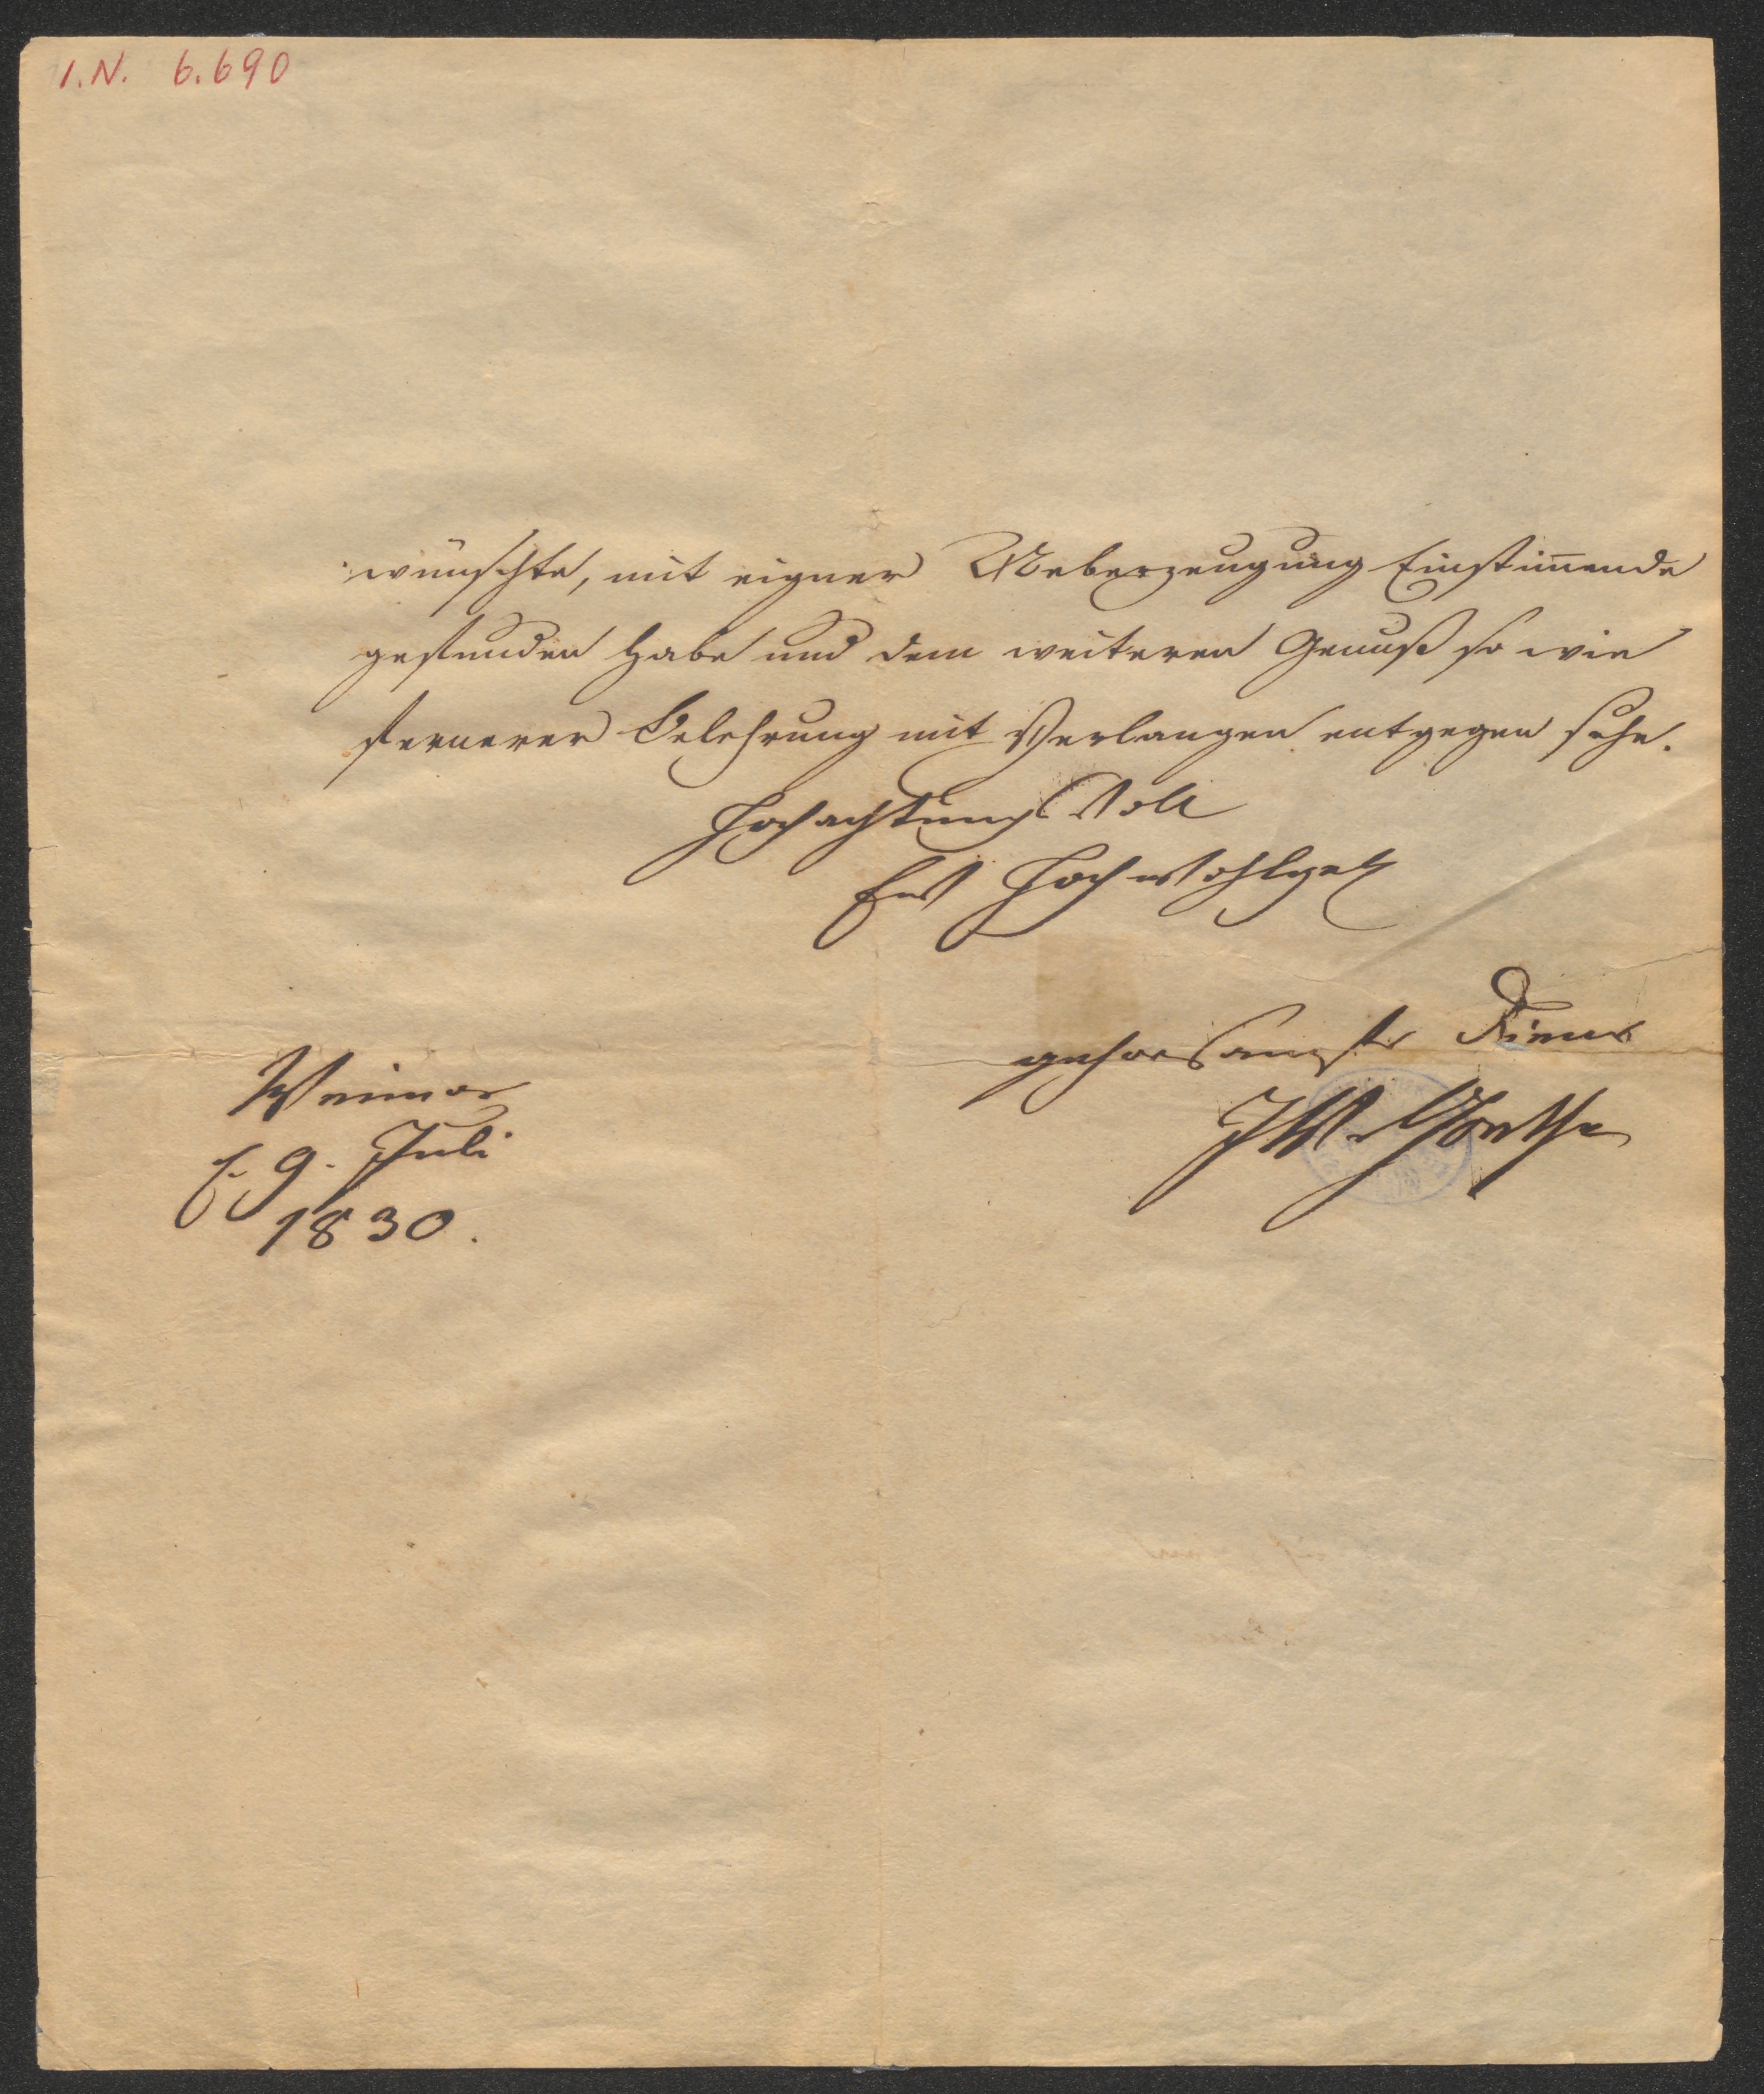 I.N. 6.690
wünschte, mit eigner Ueberzeugung Einstim̄ende
gefunden habe und dem weiteren Genuß so wie
fernerer Belehrung mit Verlangen entgegen sehe.
Hochachtungsvoll
Ew Hochwohlgeb
gehorsamster Diener
JWvGoethe
Weimar
d. 9. Juli
1830.